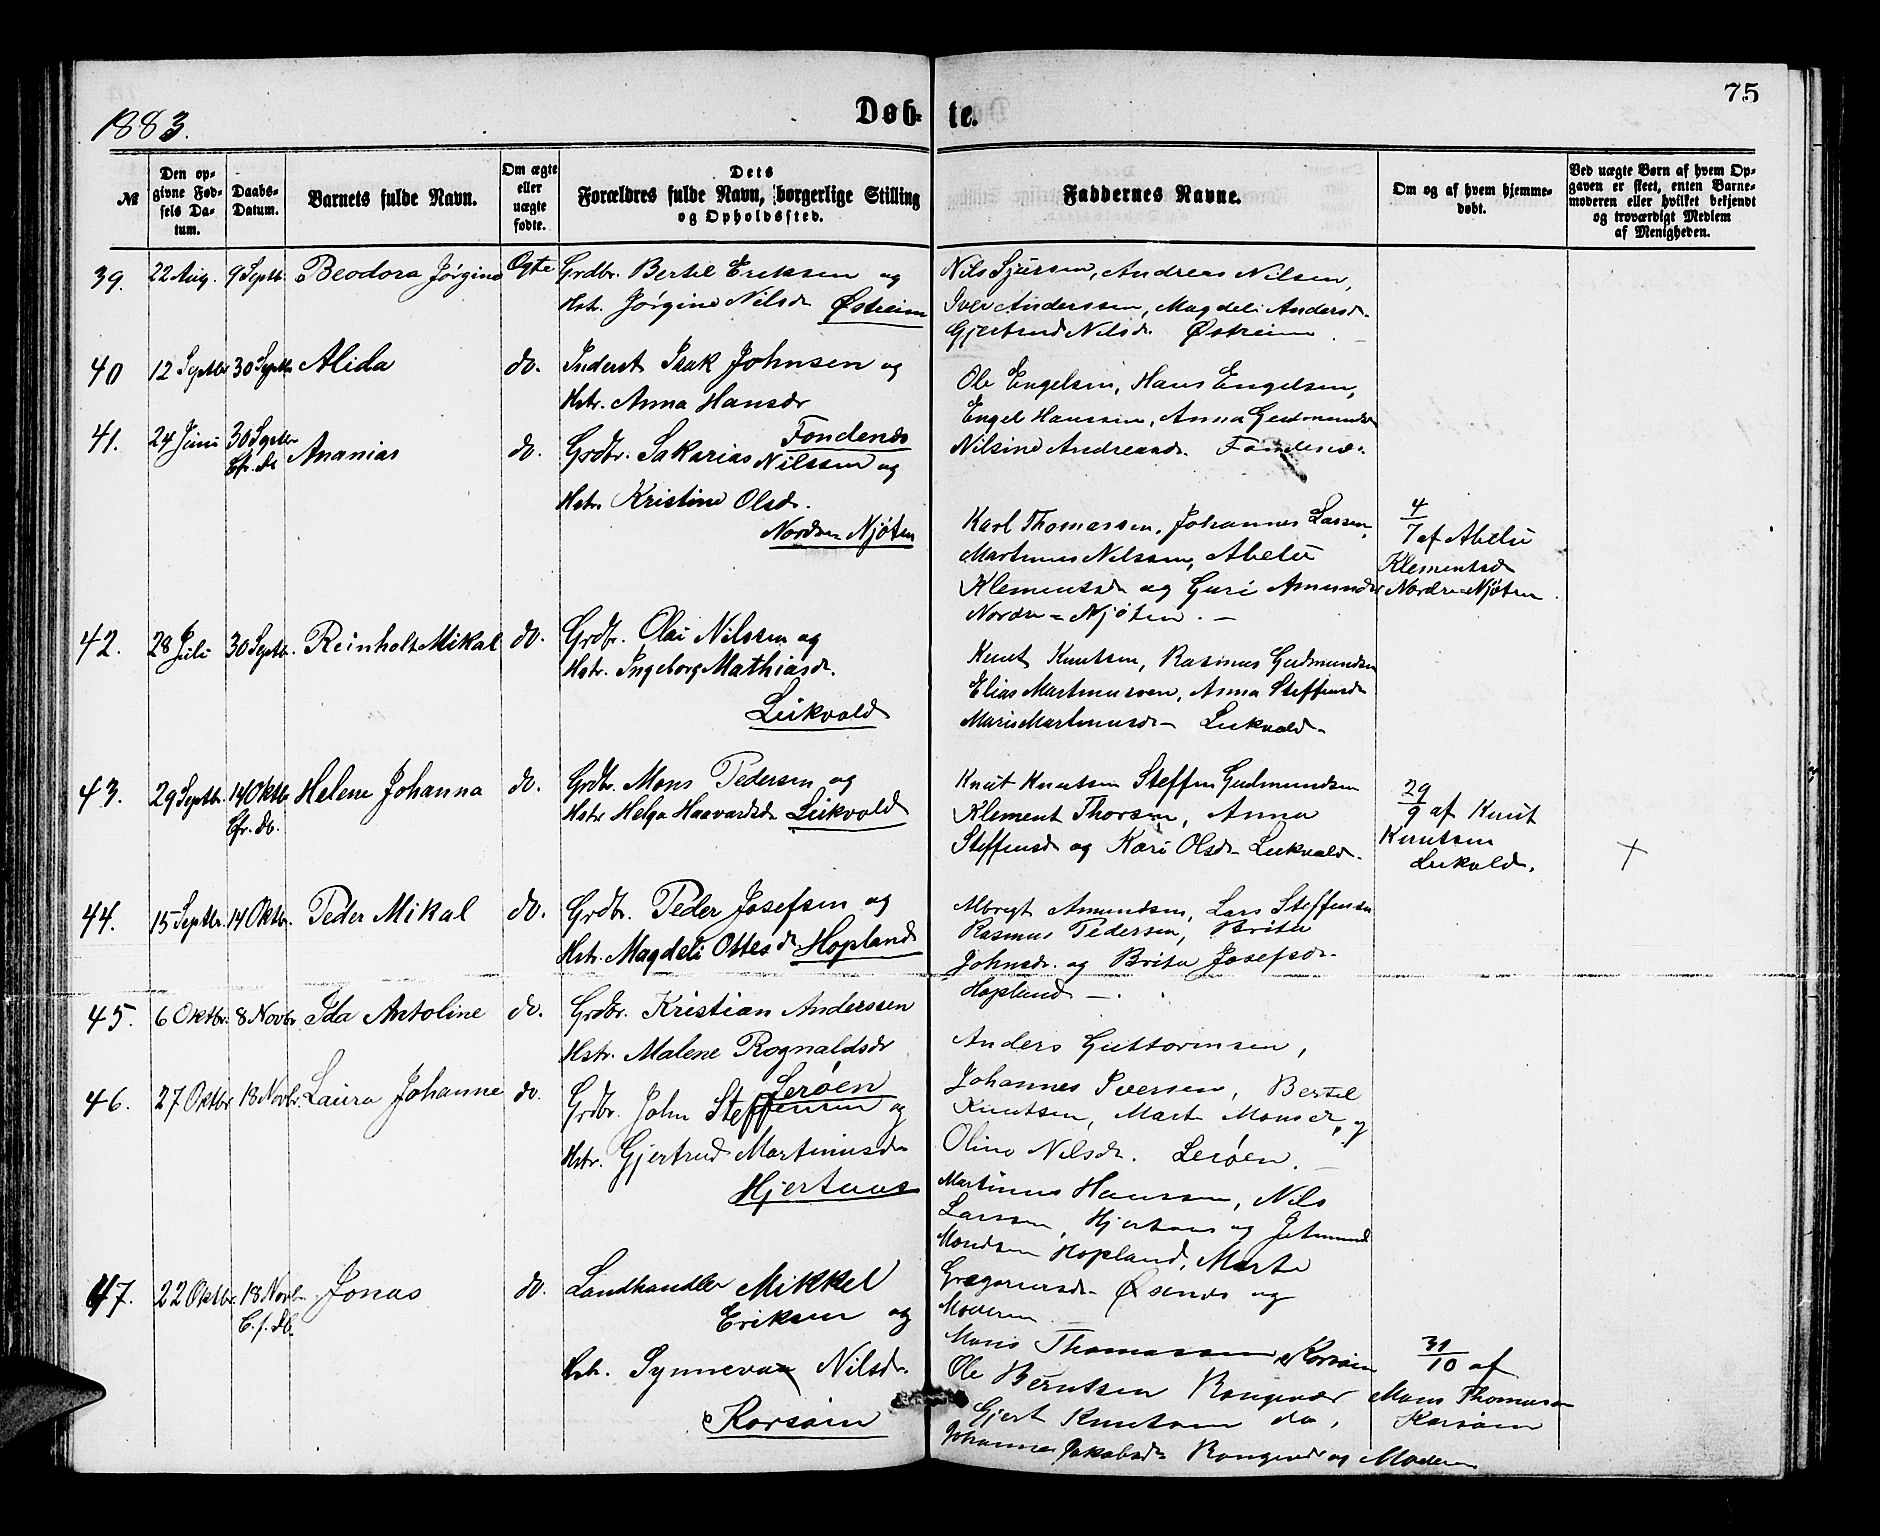 1883.
Døb-
te.
75
№
Den op-
givne Fød-
sels Da-
tum.
Daabs-
Datum.
Barnets fulde Navn.
Om ægte
eller
uægte
fødte.
Dets
Forældres fulde Navn, borgerlige Stilling
og Opholdssted.
Faddernes Navne.
Om og af hvem hjemme-
døbt.
Ved uægte Børn af hvem Op-
gaven er skeet, enten Barne-
moderen eller hvilket bekjendt
og troværdigt Medlem
af Menigheden.
39. 22 Aug. 9 Septb. Beodora Jørgine Ægte Grdbr. Bertel Eriksen og
Hstr. Jørgine Nilsdr Østreim
Nils Sjursen, Andreas Nilsen,
Iver Anderssen, Magdeli Andersdr.
Gjertrud Nilsdr. Østreim
40 12 Septbr 30 Septbr Alida do. Inderst Isak Johnsen og
Hstr. Anna Hansdr
Fondenes
Ole Engelsen, Hans Engelsen,
Engel Hanssen, Anna Gudmundsdr
Nilsine Andreasdr. Fondenæs
41. 24 Juni 30 Septbr Ananias do. Grdbr. Sakarias Nilssen og
Cfr. db
Hstr. Kristine Olsdr.
Nordre Njøten
Karl Thomassen, Johannes Lassen,
Martinus Nilssen, Abelu
Klementsdr og Guri Amundsdr
Nordre = Njøten. —
4/7 af Abelu
Klementsdr
Nordre Njøten.
42. 28 Juli 30 Septbr. Reinholt Mikal do. Grdbr. Olai Nilssen og
Hstr. Ingeborg Mathiasdr.
Leikvold
Knut Knutsen, Rasmus Gudmundsen
Elias Martinussen, Anna Steffensdr
Marie Martinusdr Leikvold.
43. 29 Septbr. 14 Oktbr Helene Johanna do. Grdbr. Mons Pedersen og
Cfr. db.
Hstr Helga Haavardsdr Leikvold
Knut Knutsen Steffen Gudmundsen
Klement Thorsen, Anna
Steffensdr og Kari Olsdr Leikvold.
29/9 af Knut
Knutsen
Leikvold.
44. 15 Septbr. 14 Oktbr. Peder Mikal do. Grdbr. Peder Josefsen og
Hstr. Magdeli Ottesdr Hopland
Albregt Amundsen, Lars Steffensen
Rasmus Pedersen, Brita
Johnsdr. og Brita Josefsdr.
Hopland —.
45. 6 Oktbr. 8 Novbr. Ida Antoline do. Grdbr. Kristian Anderssen
Hstr. Malene Rognaldsdr
Lerøen
Anders Guttormsen,
Johannes Iversen, Bertel
Knutsen, Marte Monsdr, og
Oline Nilsdr. Lerøen. —
46. 27 Oktbr 18 Novbr. Laura Johanne do. Grdbr. John Steffensen og
Hstr. Gjertrud Martinusdr
Hjertaas
Martinus Hanssen, Nils
Larsen, Hjertaas og Jetmund
Mondsen Hopland, Marte
Gregoriusdr Øsenes og
Moderen
47. 22 Oktbr. 18 Novbr Jonas do. Landhandler Mikkel
C.f. db.
Eriksen og
Hstr. Synneva Nilsdr.
Korsøen
Mons Thomassen Korsøen
Ole Berntsen Rongevær
Gjert Knutsen do,
Johannes Jakobsdr Rongevær og Moderen
31/10 af
Mons Thomassen
Korsøen